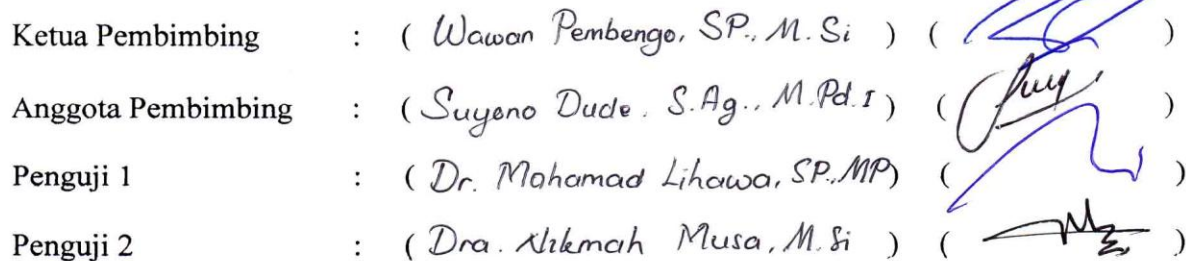 Ketua Pembimbing : ( Wawan Pembengo, SP., M. Si ) ( )
Anggota Pembimbing : ( Suyono Dude. S.Ag., M.Pd.I ) ( )
Penguji 1 : ( Dr. Mohamad Lihawa, SP., MP ) ( )
Penguji 2 : ( Dra. Nikmah Musa, M. Si ) ( )